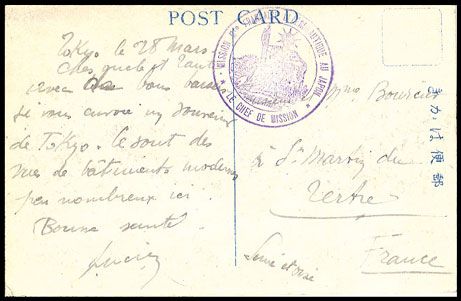 POST CARD
MISSION AU JAPON
LE CHEF DE MISSION
Tokyo le 28 Mars
avec bons
je vous envoie un souvenir
de Tokyo. Ce sont des
vues de bâtiments modernes
peu nombreux ici.
Bonne santé.
Lucien
Mme
à St Martin du
Tertre
Seine et Oise
France
きかは便郵